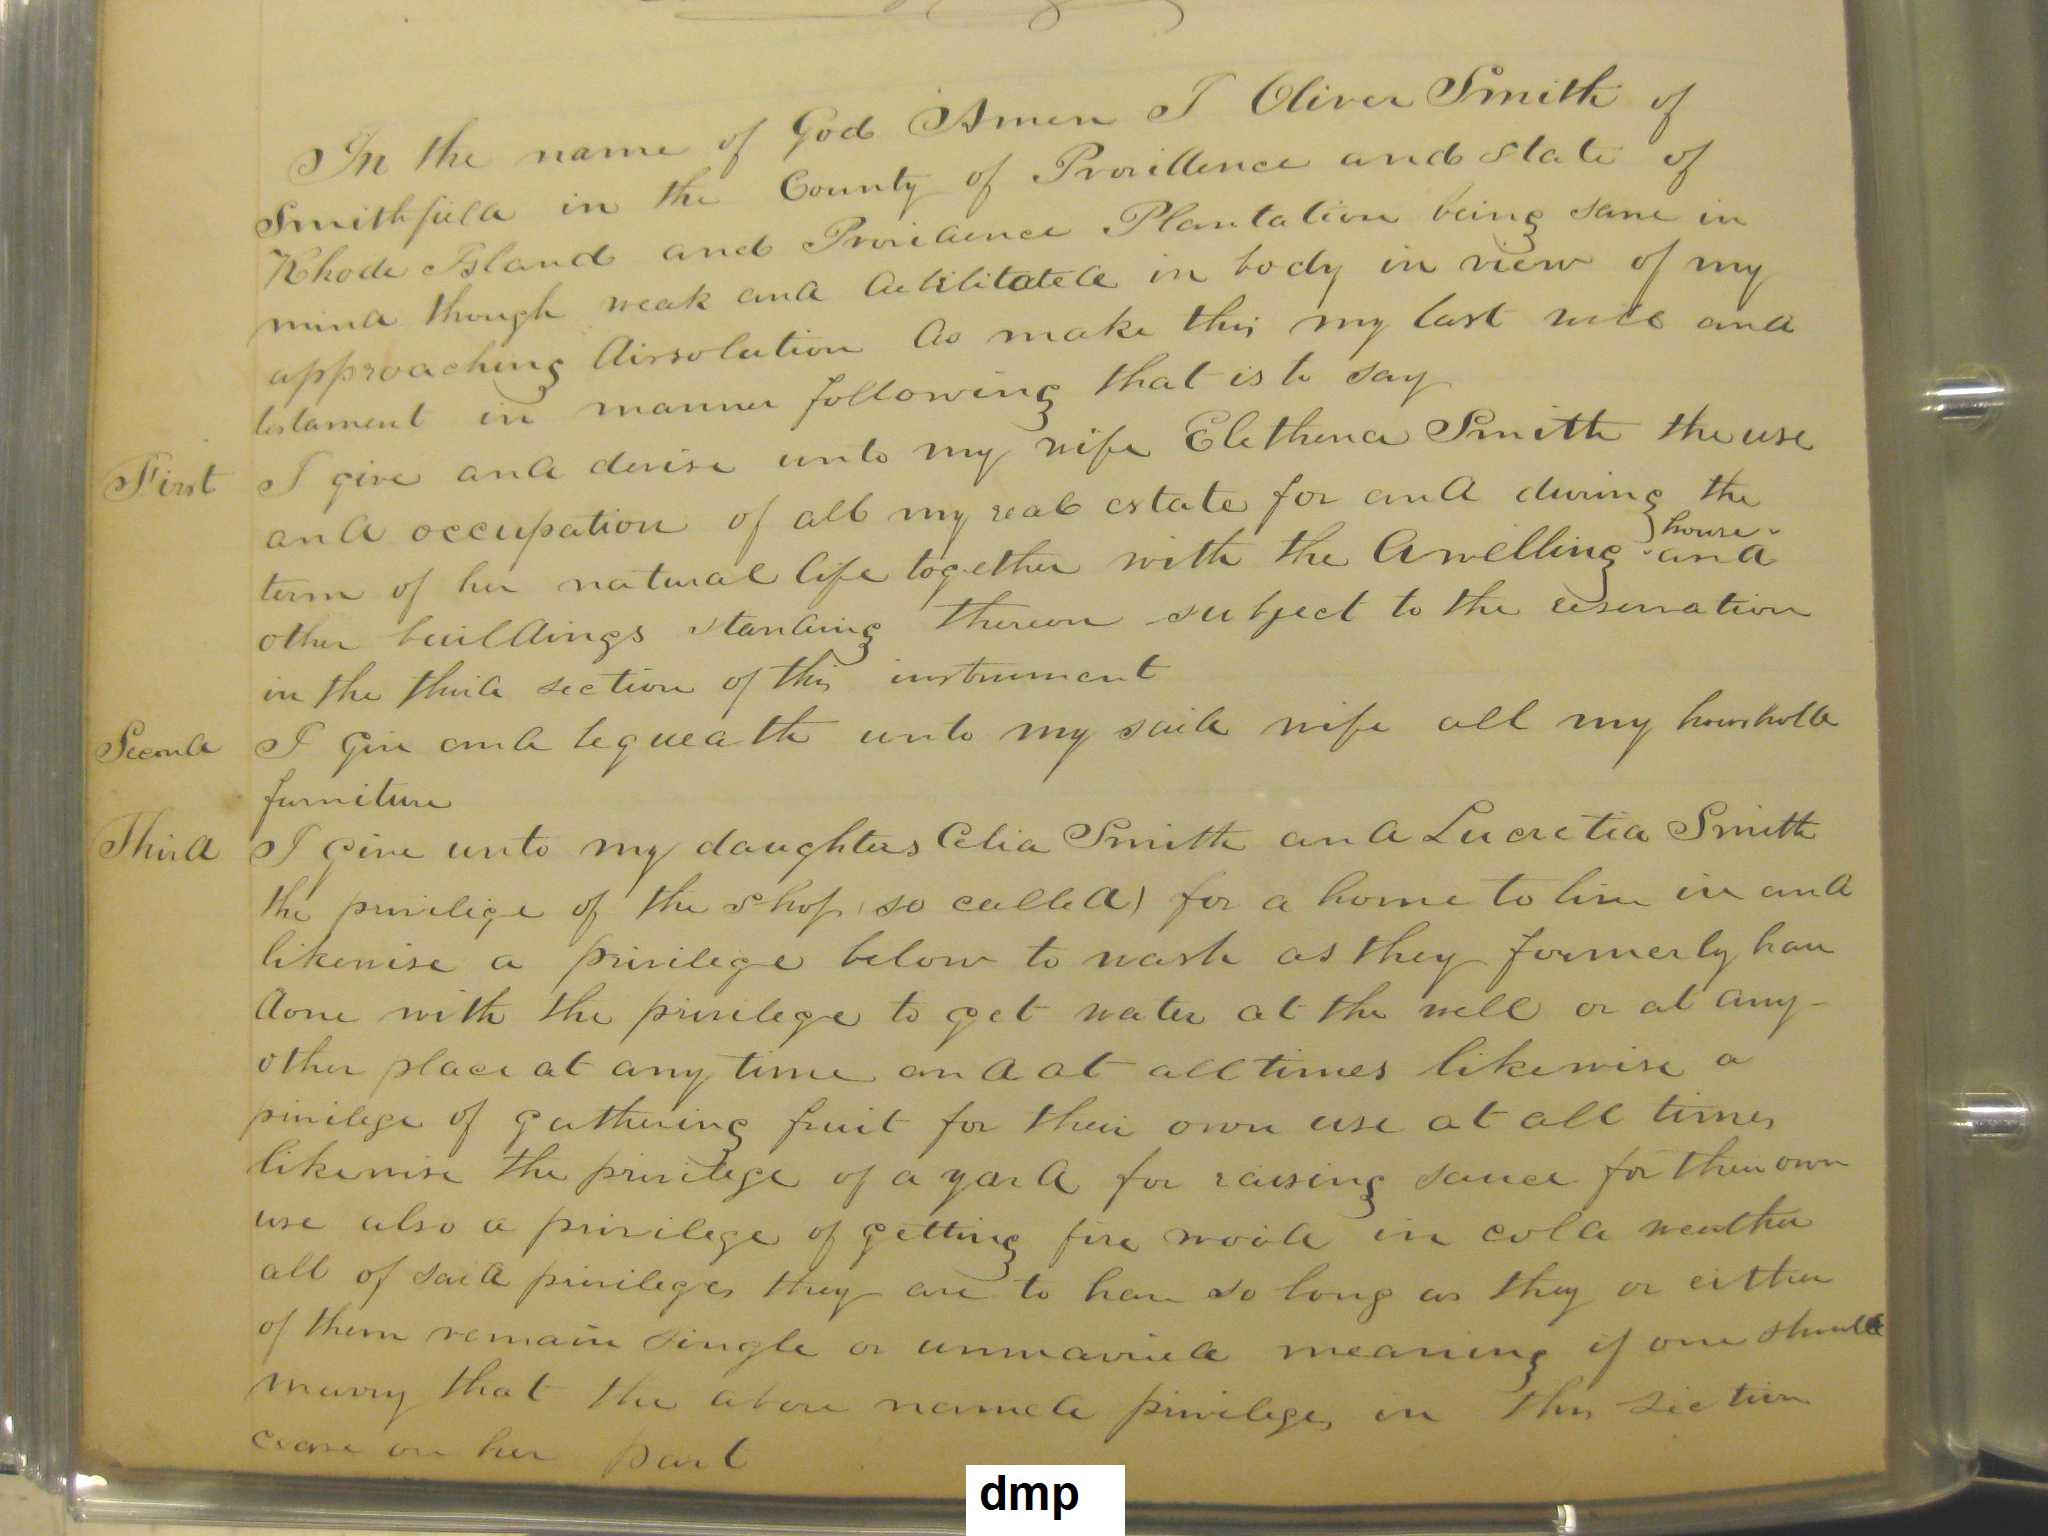 In the name of God Amen I Oliver Smith of
Smithfield in the County of Providence and State of
Rhode Island and Providence Plantation being sane in
mind though weak and debilitated in body in view of my
approaching dissolution do make this my last will and
testament in manner following that is to say
First I give and devise unto my wife Elethena Smith the use
and occupation of all my real estate for and during the
term of her natural life together with the dwelling house and
other buildings standing thereon subject to the reservation
in the third section of this instrument
Second I give and bequeath unto my said wife all my household
furniture
Third I give unto my daughters Celia Smith and Lucretia Smith
the privilige of the shop (so called) for a home to live in and
likewise a privilege below to wash as they formerly have
done with the privilege to get water at the well or at any-
other place at any time and at all times likewise a
privilege of gathering fruit for their own use at all times
likewise the privilege of a yard for raising sauce for their own
use also a privilege of getting fire wood in cold weather
all of said privileges they are to have so long as they or either
of them remain single or unmarried meaning if one should
marry that the above named privileges in this section
cease on her part
dmp